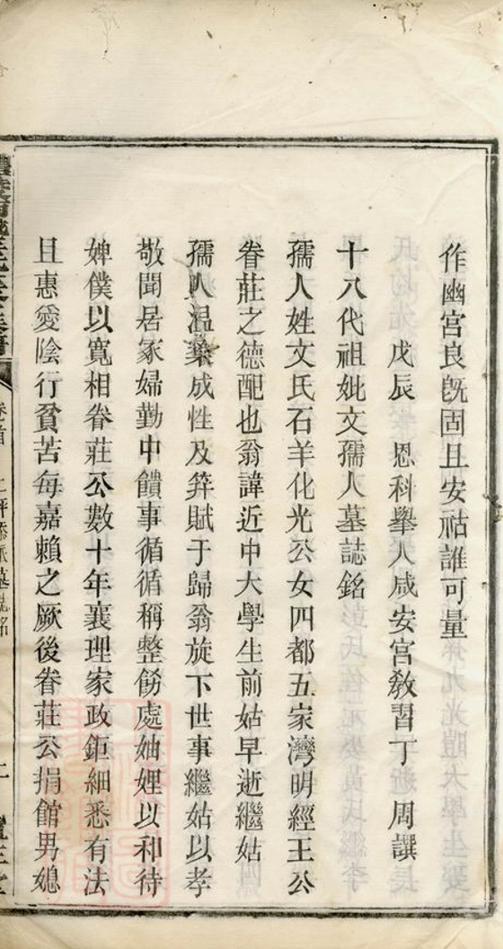 作幽宮良旣固且安祜誰可量
戊辰 恩科舉人咸安宮敎習丁周譔
十八代祖妣文孺人墓誌銘
孺人姓文氏石羊化光公女四都五家灣明經王公
眷莊之德配也翁諱近中大學生前姑早逝繼姑
孺人溫藥成性及笄賦于歸翁旋下世事繼姑以孝
敬聞居冢婦勤中饋事循循稱整飭處妯娌以和待
婢僕以寬相眷莊公數十年襄理家政鉅細悉有法
且惠愛陰行貧苦每嘉賴之厥後眷莊公捐館男媳
卷首